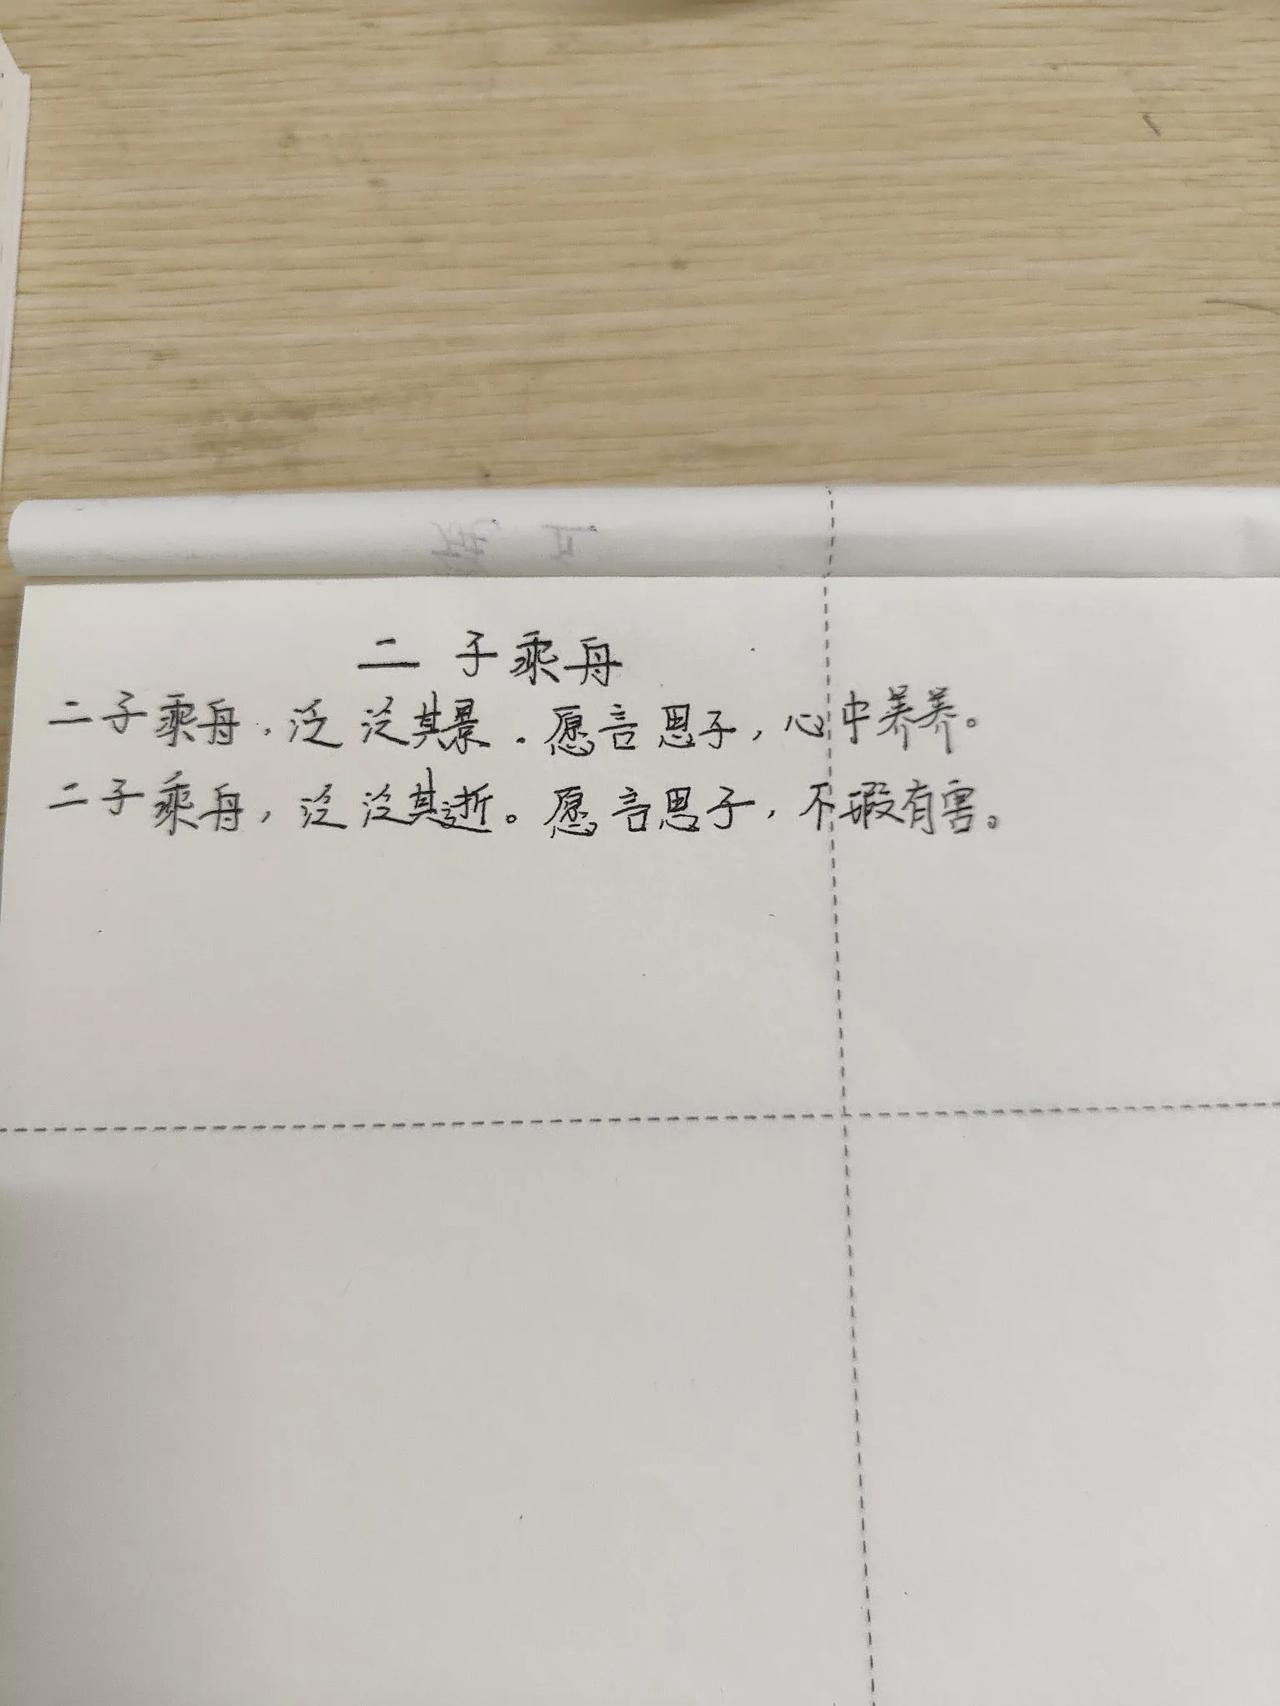 二子乘舟
二子乘舟，泛泛其景．愿言思子，心中养养。
二子乘舟，泛泛其逝。愿言思子，不瑕有害。